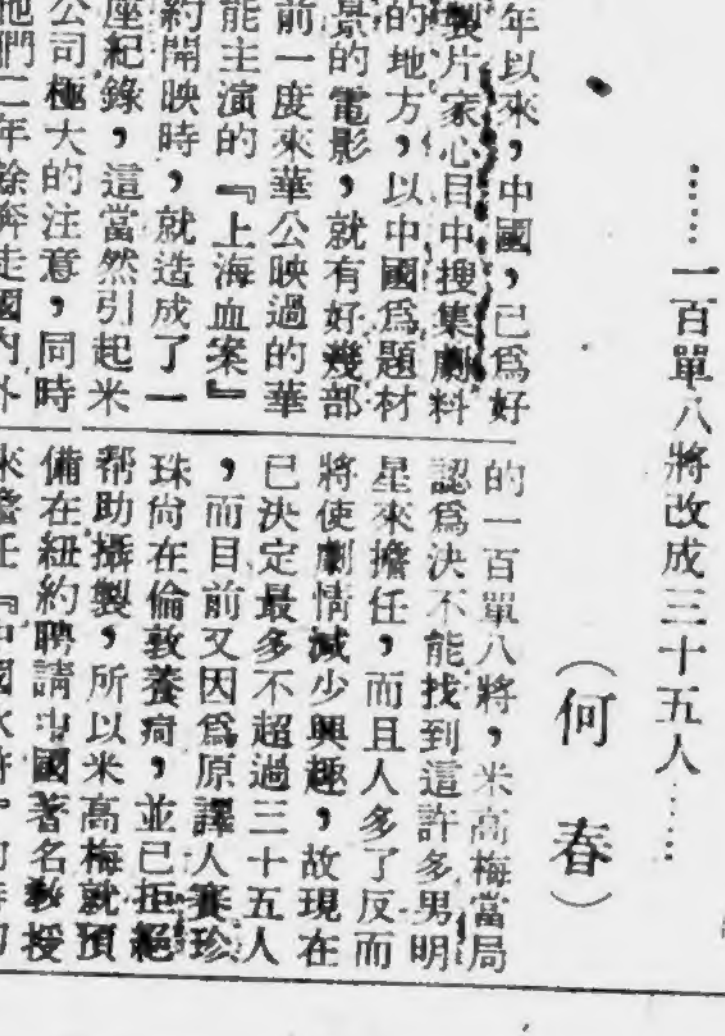 ……一百單八將改成三十五人……
（何春）
年以來，中國，已爲好
製片家心目中搜集劇料
的地方，以中國爲題材
景的電影，就有好幾部
前一度來華公映過的華
能主演的『上海血案』
約開映時，就造成了一
座紀錄，這當然引起米
公司極大的注意，同時
他們二年餘奔走國內外
的一百單八將，米高梅當局
認爲決不能找到這許多男明
星來擔任，而且人多了反而
將使劇情減少興趣，故現在
已決定最多不超過三十五人
，而目前又因爲原譯人賽珍
珠尙在倫敦養疴，並已拒絕
帮助攝製，所以米高梅就預
備在紐約聘請中國著名教授
來擔任『中國水滸